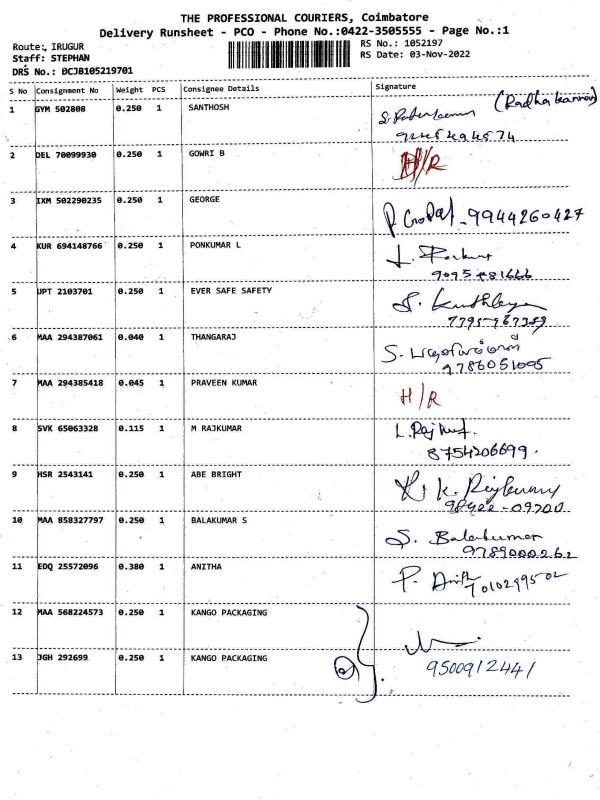 THE PROFESSIONAL COURIERS, Coimbatore
Delivery Runsheet - PCO - Phone No.:0422-3505555 - Page No.:1
Route: IRUGUR RS No.: 1052197
Staff: STEPHAN RS Date: 03-Nov-2022
DRS No.: DCJB105219701
S No Consignment No Weight PCS Consignee Details Signature
1 GYM 502808 0.250 1 SANTHOSH (Radhakannan)
2 DEL 70099930 0.250 1 GOWRI B H/R
3 IXM 502290235 0.250 1 GEORGE P. Gopal - 9944260427
4 KUR 694148766 0.250 1 PONKUMAR L
5 UPT 2103701 0.250 1 EVER SAFE SAFETY S.
7795-967389
6 MAA 294387061 0.040 1 THANGARAJ S.
9786051095
7 MAA 294385418 0.045 1 PRAVEEN KUMAR H/R
8 SVK 65063328 0.115 1 M RAJKUMAR L. Rajkumar
8754206699.
9 HSR 2543141 0.250 1 ABE BRIGHT K.
10 MAA 858327797 0.250 1 BALAKUMAR S S. Balakumar
9789000262
11 EDQ 25572096 0.380 1 ANITHA P.
7010299502
12 MAA 568224573 0.250 1 KANGO PACKAGING
13 JGH 292699 0.250 1 KANGO PACKAGING 9500912441